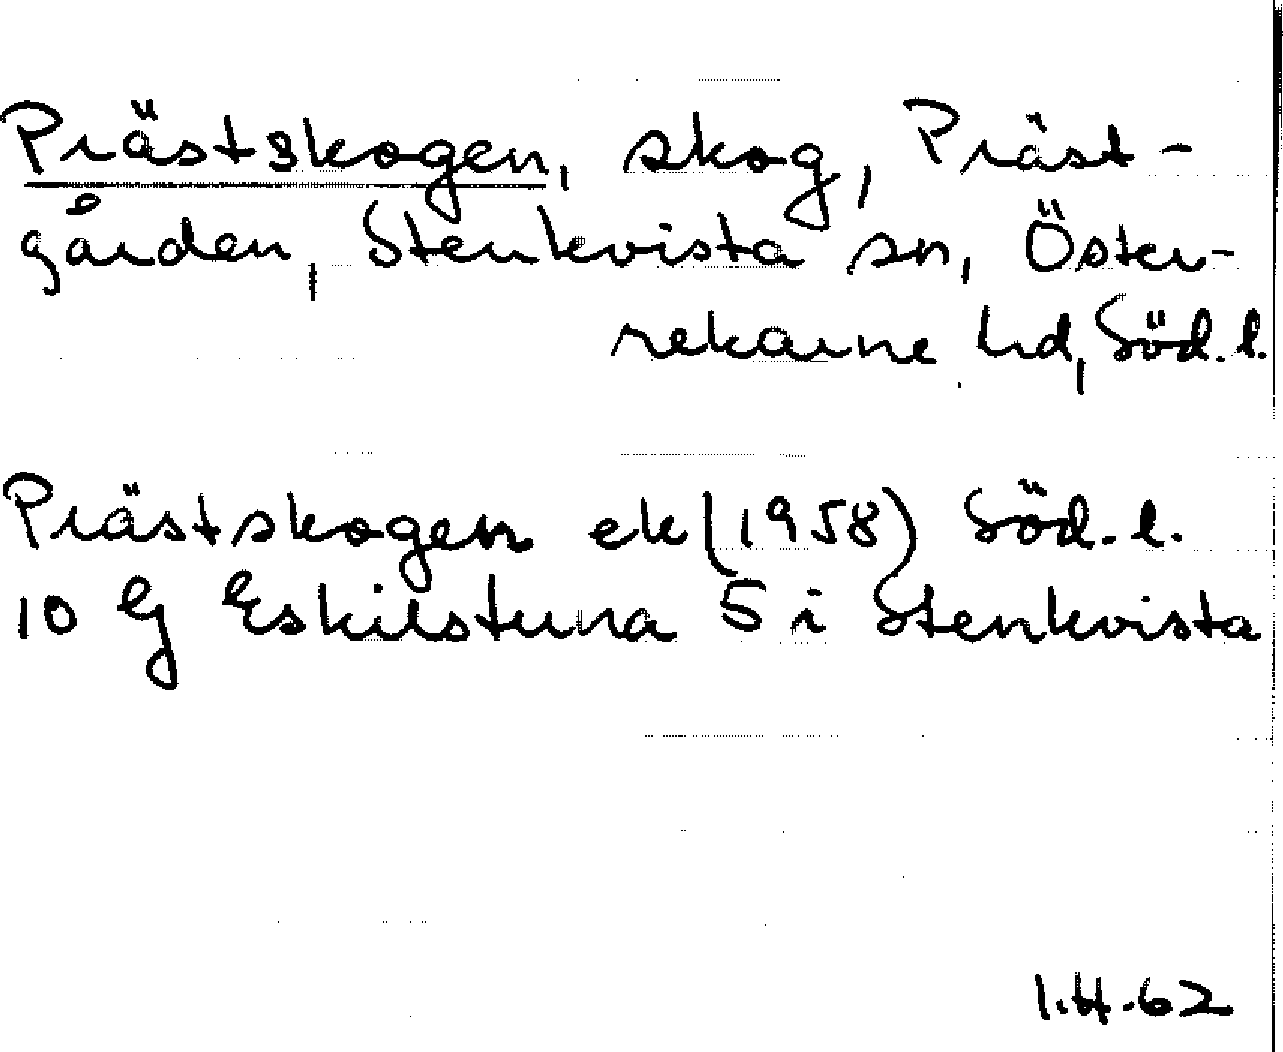 Prästskogen, skog, Präst-
gården, Stenkvista sn, Öster-
rekarne hd, Söd.l.
Prästskogen ek (1958) Söd.l.
10 G Eskilstuna 5 i Stenkvista
I.H.62